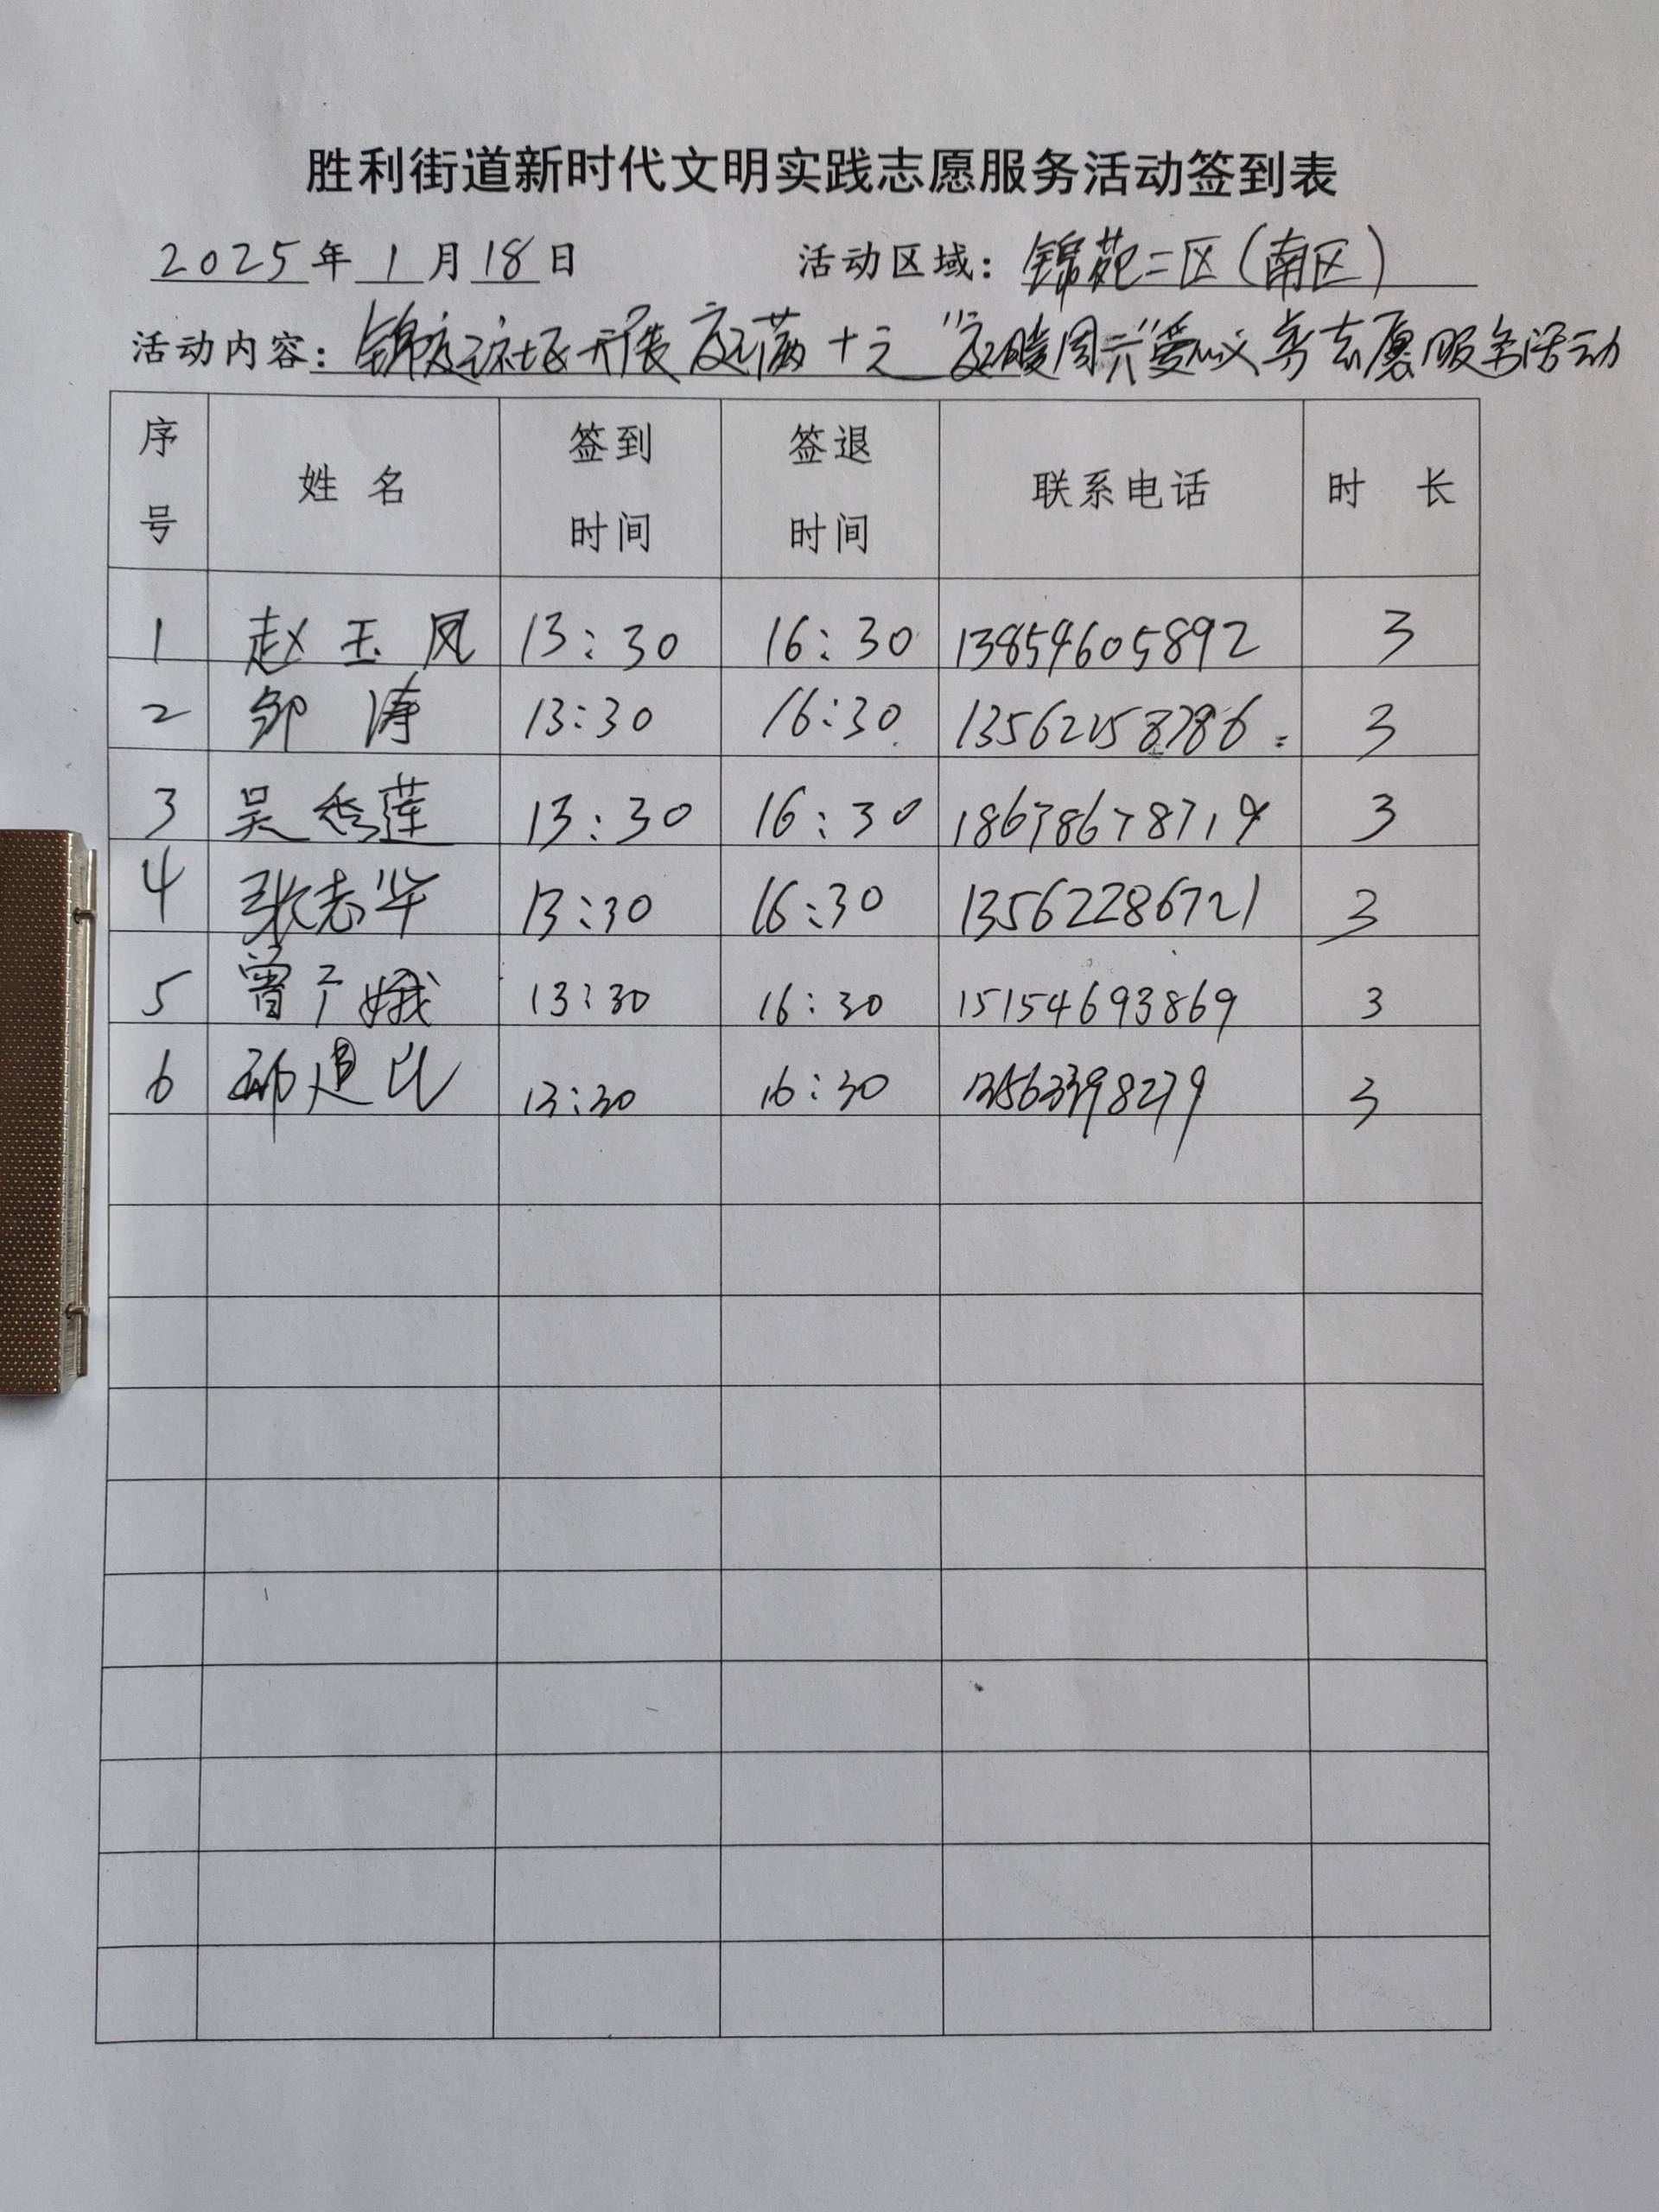 胜利街道新时代文明实践志愿服务活动签到表
2025年1月18日 活动区域：锦苑二区(南区)
活动内容：锦庭社区开展庭满十元"庭暖周六"爱心义剪志愿服务活动
序号 姓名 签到时间 签退时间 联系电话 时长
1 赵玉凤 13:30 16:30 13854605892 3
2 邹涛 13:30 16:30 13562158786 3
3 吴秀莲 13:30 16:30 18678678719 3
4 张志华 13:30 16:30 13562286721 3
5 曾广娥 13:30 16:30 15154693869 3
6 13:30 16:30 3